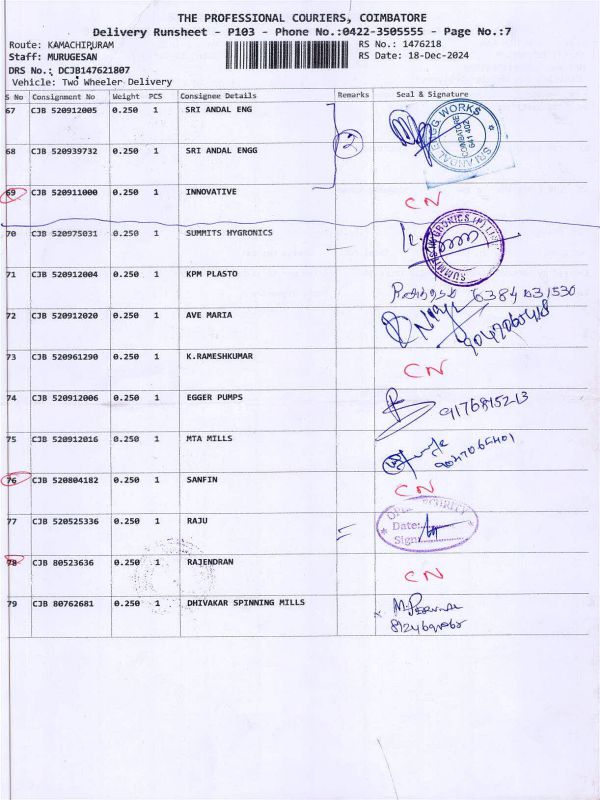 THE PROFESSIONAL COURIERS, COIMBATORE
Delivery Runsheet - P103 - Phone No.:0422-3505555 - Page No.:7
Route: KAMACHIPURAM RS No.: 1476218
Staff: MURUGESAN RS Date: 18-Dec-2024
DRS No.: DCJB147621807
Vehicle: Two Wheeler Delivery
S No Consignment No Weight PCS Consignee Details Remarks Seal & Signature
67 CJB 520912005 0.250 1 SRI ANDAL ENG
SRI ANDAL ENGG WORKS COIMBATORE 641 402
68 CJB 520939732 0.250 1 SRI ANDAL ENGG 2
69 CJB 520911000 0.250 1 INNOVATIVE CN
70 CJB 520975031 0.250 1 SUMMITS HYGRONICS
SUMMITS HYGRONICS (P) LIMITED
71 CJB 520912004 0.250 1 KPM PLASTO 6384031530
72 CJB 520912020 0.250 1 AVE MARIA
73 CJB 520961290 0.250 1 K.RAMESHKUMAR CN
74 CJB 520912006 0.250 1 EGGER PUMPS
75 CJB 520912016 0.250 1 MTA MILLS
76 CJB 520804182 0.250 1 SANFIN CN
77 CJB 520525336 0.250 1 RAJU
SECURITY
Date:
Sign:
78 CJB 80523636 0.250 1 RAJENDRAN CN
79 CJB 80762681 0.250 1 DHIVAKAR SPINNING MILLS